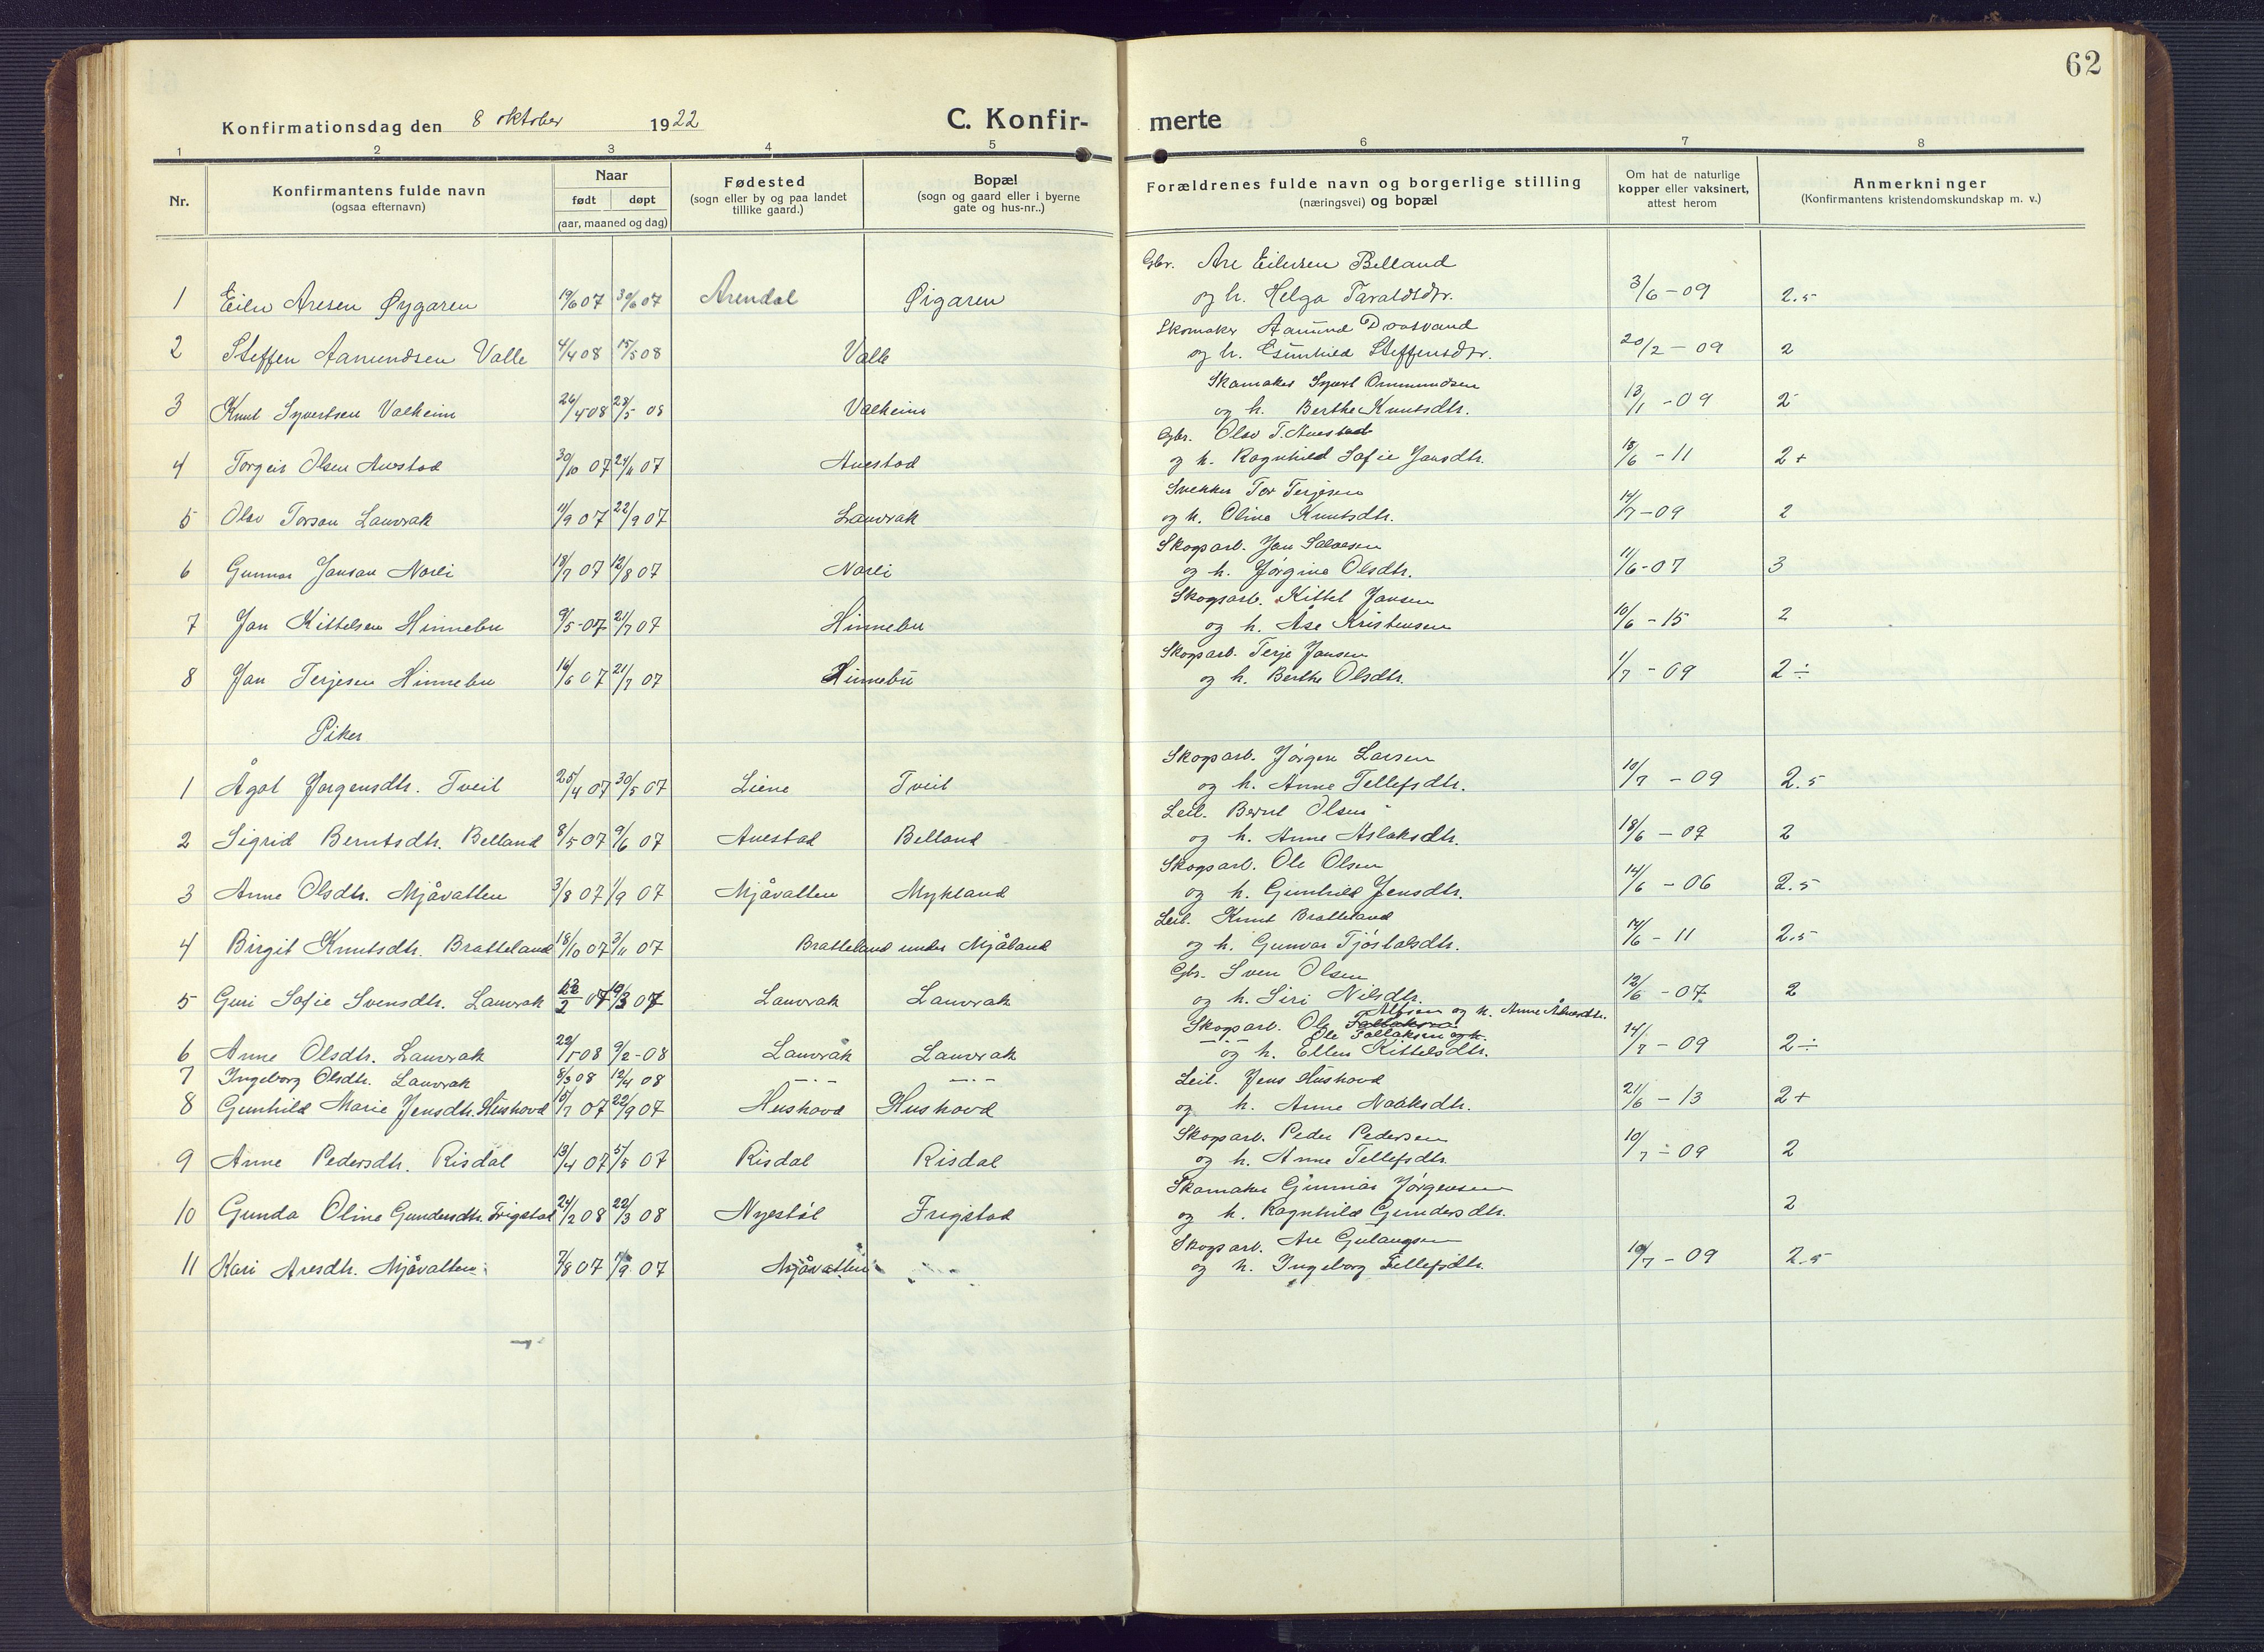 62
Konfirmationsdag den 8 oktober 1922 C. Konfir- merte
1 2 3 4 5 6 7 8
Nr.
Konfirmantens fulde navn
(ogsaa efternavn)
Naar
født døpt
(aar, maaned og dag)
Fødested
(sogn eller by og paa landet
tillike gaard.)
Bopæl
(sogn og gaard eller i byerne
gate og hus-nr..)
Forældrenes fulde navn og borgerlige stilling
(næringsvei) og bopæl
Om hat de naturlige
kopper eller vaksinert,
attest herom
Anmerkninger
(Konfirmantens kristendomskundskap m. v.)
Gbr. Are Eilersen Belland
1 Eilev Aresen Øygaren 19/6 07 30/6 07 Arendal Øigaren og h. Helga Taraldsdtr. 3/6 - 09 2.5
Skomaker Aamund Draasvand
2 Steffen Aamundsen Valle 4/4 08 15/5 08 Valle og h. Steffensdtr. 20/2 - 09 2
Skomaker Syvert Ommundsen
3 Knut Syvertsen Valheim 26/4 08 28/5 08 Valheim og h. Berthe Knutsdtr. 13/1 - 09 2
Gbr. Olav T. Auestad
4 Torgeir Olsen Auestad 30/10 07 24/11 07 Auestad og h. Ragnhild Sofie Jansdtr. 18/6 - 11 2+
Snekker Tor Terjesen
5 Olav Torson Lauvrak 11/9 07 22/9 07 Lauvrak og h. Oline Knutsdtr. 14/7 - 09 2
Skogsarb. Jan Salvesen
6 Gunnar Janson Norli 18/7 07 12/8 07 Norli og h. Jørgine Olsdtr. 11/6 - 07 3
Skogsarb. Kittel Jansen
7 Jan Kittelsen Hinnebu 9/5 - 07 21/7 07 Hinnebu og h. Åse Kristensen 10/6 - 15 2
Skogsarb. Terje Jansen
8 Jan Terjesen Hinnebu 16/6 07 21/7 07 Hinnebu og h. Berthe Olsdtr. 1/7 - 09 2 ÷
Piker
Skogsarb. Jørgen Larsen
1 Ågot Jørgensdtr. Tveit 25/4 07 30/5 07 Liene Tveit og h. Anne Tellefsdtr. 10/7 - 09 2.5
Leil. Bernt Olsen
2 Sigrid Berntsdtr. Belland 8/5 07 9/6 07 Auestad Belland og h. Anne Aslaksdtr. 18/6 - 09 2
Skogsarb. Ole Olsen
3 Anne Olsdtr. Mjåvatten 3/8 07 1/9 07 Mjåvatten Mykland og h. Gunhild Jensdtr. 14/6 - 06 2.5
Leil. Knut Bratteland
4 Birgit Knutsdtr. Bratteland 18/10 07 3/11 07 Bratteland under Mjåland og h. Gunvor Tjøstolsdtr. 14/6 - 11 2.5
Gbr. Sven Olsen
5 Guri Sofie Svensdtr. Lauvrak 22/2 07 19/3 07 Lauvrak Lauvrak og h. Siri Nilsdtr. 12/6 - 07 2
Skogsarb. Ole Alfsen og h. Anne
— . — Ole Follaksen og h.
6 Anne Olsdtr. Lauvrak 22/1 08 9/2 - 08 Lauvrak Lauvrak og h. Ellen Kittelsdtr. 14/7 - 09 2 ÷
7 Ingeborg Olsdtr. Lauvrak 8/3 08 12/4 08 — . — — . — Leil. Jens Hushovd
8 Gunhild Marie Jensdtr. Hushovd 15/7 07 22/9 07 Hushovd Hushovd og h. Anne Noaksdtr. 21/6 - 13 2+
Skogsarb. Peder Pedersen
9 Anne Pedersdtr. Risdal 13/4 07 5/5 07 Risdal Risdal og h. Anne Tellefsdtr. 10/7 - 09 2
Skomaker Gunnar Jørgensen
10 Gunda Oline Gundersdtr. Frigstad 24/2 08 22/3 08 Nyestøl Frigstad og h. Ragnhild Gundersdtr. 2
Skogsarb. Are Gulaugsen
11 Kari Aresdtr. Mjåvatten 7/8 07 1/9 07 Mjåvatten og h. Ingeborg Tellefsdtr. 10/7 - 09 2.5